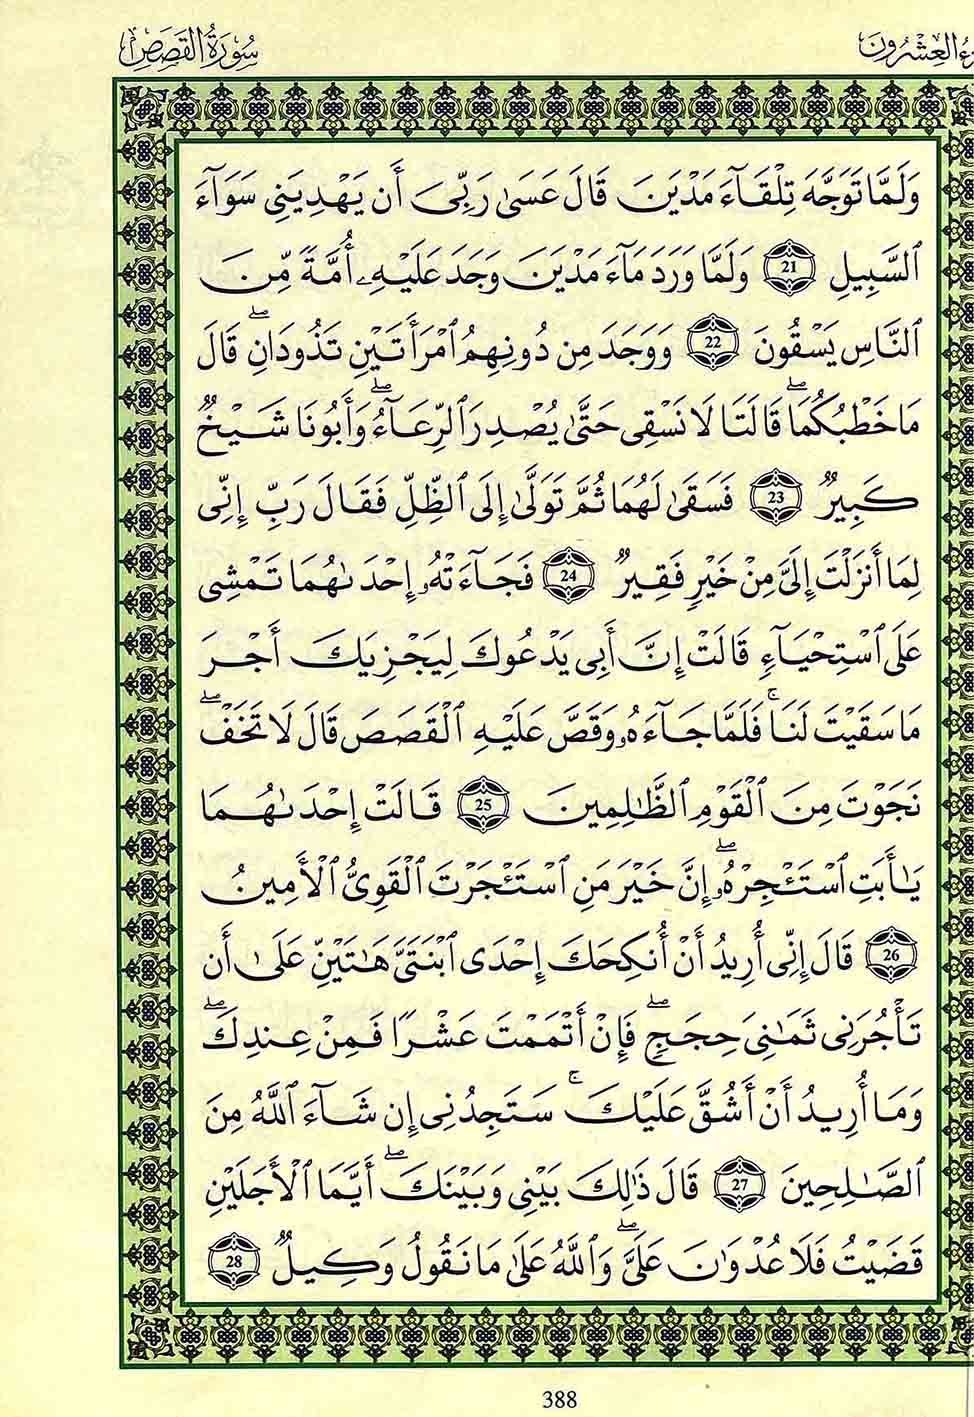 زءُ العِشْرُونَ سُورَةُ القَصَصِ
وَلَمَّا تَوَجَّهَ تِلْقَآءَ مَدْيَنَ قَالَ عَسَىٰ رَبِّىٓ أَن يَهْدِيَنِى سَوَآءَ
ٱلسَّبِيلِ 21 وَلَمَّا وَرَدَ مَآءَ مَدْيَنَ وَجَدَ عَلَيْهِ أُمَّةً مِّنَ
ٱلنَّاسِ يَسْقُونَ 22 وَوَجَدَ مِن دُونِهِمُ ٱمْرَأَتَيْنِ تَذُودَانِۖ قَالَ
مَا خَطْبُكُمَاۖ قَالَتَا لَا نَسْقِى حَتَّىٰ يُصْدِرَ ٱلرِّعَآءُۖ وَأَبُونَا شَيْخٌ
كَبِيرٌ 23 فَسَقَىٰ لَهُمَا ثُمَّ تَوَلَّىٰٓ إِلَى ٱلظِّلِّ فَقَالَ رَبِّ إِنِّى
لِمَآ أَنزَلْتَ إِلَىَّ مِنْ خَيْرٍ فَقِيرٌ 24 فَجَآءَتْهُ إِحْدَىٰهُمَا تَمْشِى
عَلَى ٱسْتِحْيَآءٍ قَالَتْ إِنَّ أَبِى يَدْعُوكَ لِيَجْزِيَكَ أَجْرَ
مَا سَقَيْتَ لَنَاۚ فَلَمَّا جَآءَهُۥ وَقَصَّ عَلَيْهِ ٱلْقَصَصَ قَالَ لَا تَخَفْۖ
نَجَوْتَ مِنَ ٱلْقَوْمِ ٱلظَّٰلِمِينَ 25 قَالَتْ إِحْدَىٰهُمَا
يَٰٓأَبَتِ ٱسْتَـْٔجِرْهُۖ إِنَّ خَيْرَ مَنِ ٱسْتَـْٔجَرْتَ ٱلْقَوِىُّ ٱلْأَمِينُ
26 قَالَ إِنِّىٓ أُرِيدُ أَنْ أُنكِحَكَ إِحْدَى ٱبْنَتَىَّ هَٰتَيْنِ عَلَىٰٓ أَن
تَأْجُرَنِى ثَمَٰنِىَ حِجَجٍۖ فَإِنْ أَتْمَمْتَ عَشْرًا فَمِنْ عِندِكَۖ
وَمَآ أُرِيدُ أَنْ أَشُقَّ عَلَيْكَۚ سَتَجِدُنِىٓ إِن شَآءَ ٱللَّهُ مِنَ
ٱلصَّٰلِحِينَ 27 قَالَ ذَٰلِكَ بَيْنِى وَبَيْنَكَۖ أَيَّمَا ٱلْأَجَلَيْنِ
قَضَيْتُ فَلَا عُدْوَٰنَ عَلَىَّۖ وَٱللَّهُ عَلَىٰ مَا نَقُولُ وَكِيلٌ 28
388